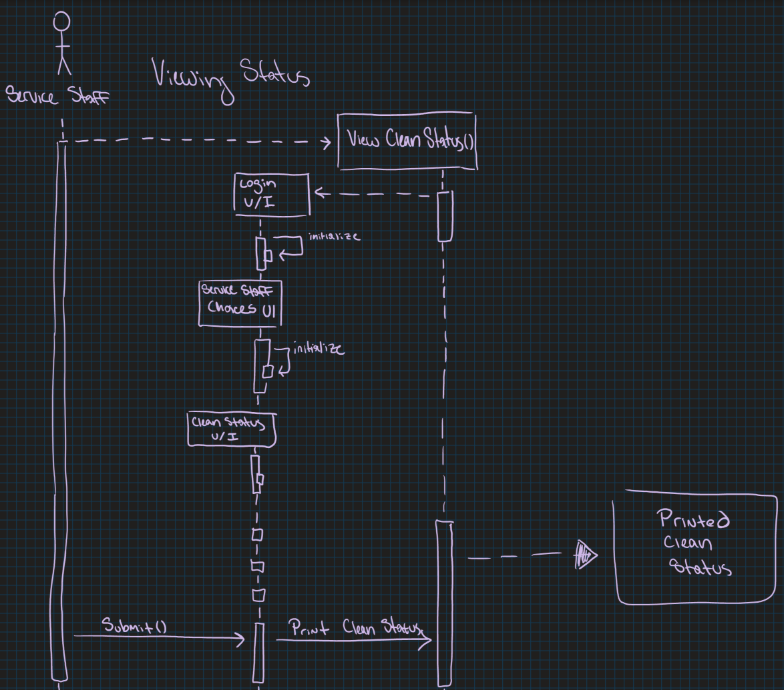 Viewing Status
Service Staff
View Clean Status()
Login
U/I
initialize
Service Staff
Choices UI
initialize
Clean Status
U/I
Printed
Clean
Status
Submit()
Print Clean Status